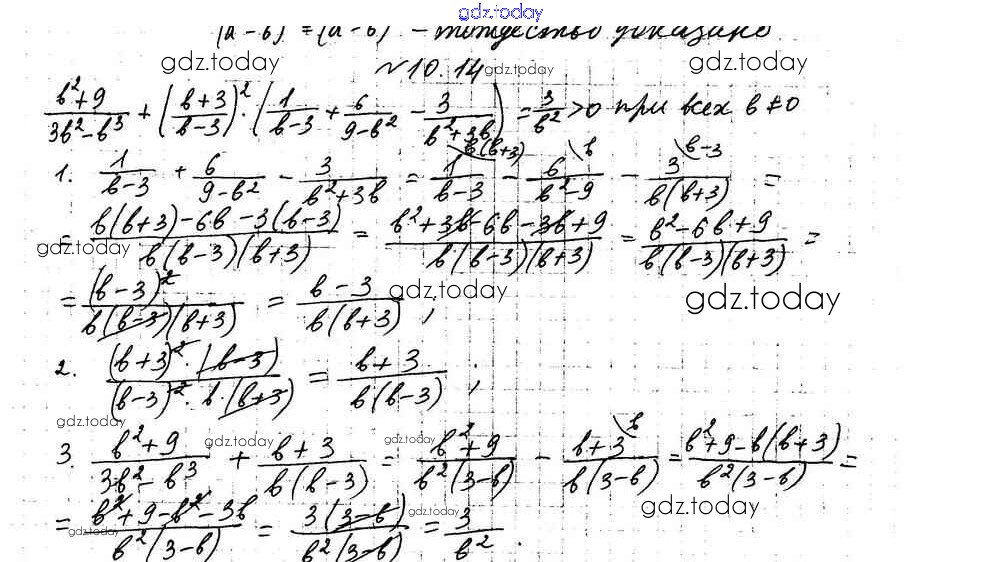 gdz.today
(a-b) = (a-b) - тождество доказано
gdz.today gdz.today
№10.14 gdz.today
(b²+9)/(3b²-b³) + ((b+3)/(b-3))² · (1/(b-3) + 6/(9-b²) - 3/(b²+3b)) = 3/b² > 0 при всех b ≠ 0
1. 1/(b-3) + 6/(9-b²) - 3/(b²+3b) = 1\b(b+3)/(b-3) - 6\b/(b²-9) - 3\b-3/(b(b+3)) =
= (b(b+3)-6b-3(b-3))/(b(b-3)(b+3)) = (b²+3b-6b-3b+9)/(b(b-3)(b+3)) = (b²-6b+9)/(b(b-3)(b+3)) =
gdz.today
= (b-3)²/(b(b-3)(b+3)) = (b-3)/(b(b+3)),
gdz.today gdz.today
2. ((b+3)²·(b-3))/((b-3)²·b·(b+3)) = (b+3)/(b(b-3));
gdz.today gdz.today gdz.today
3. (b²+9)/(3b²-b³) + (b+3)/(b(b-3)) = (b²+9)/(b²(3-b)) - (b+3)\b/(b(3-b)) = (b²+9-b(b+3))/(b²(3-b)) =
gdz.today gdz.today
= (b²+9-b²-3b)/(b²(3-b)) = 3(3-b)/(b²(3-b)) = 3/b².
gdz.today